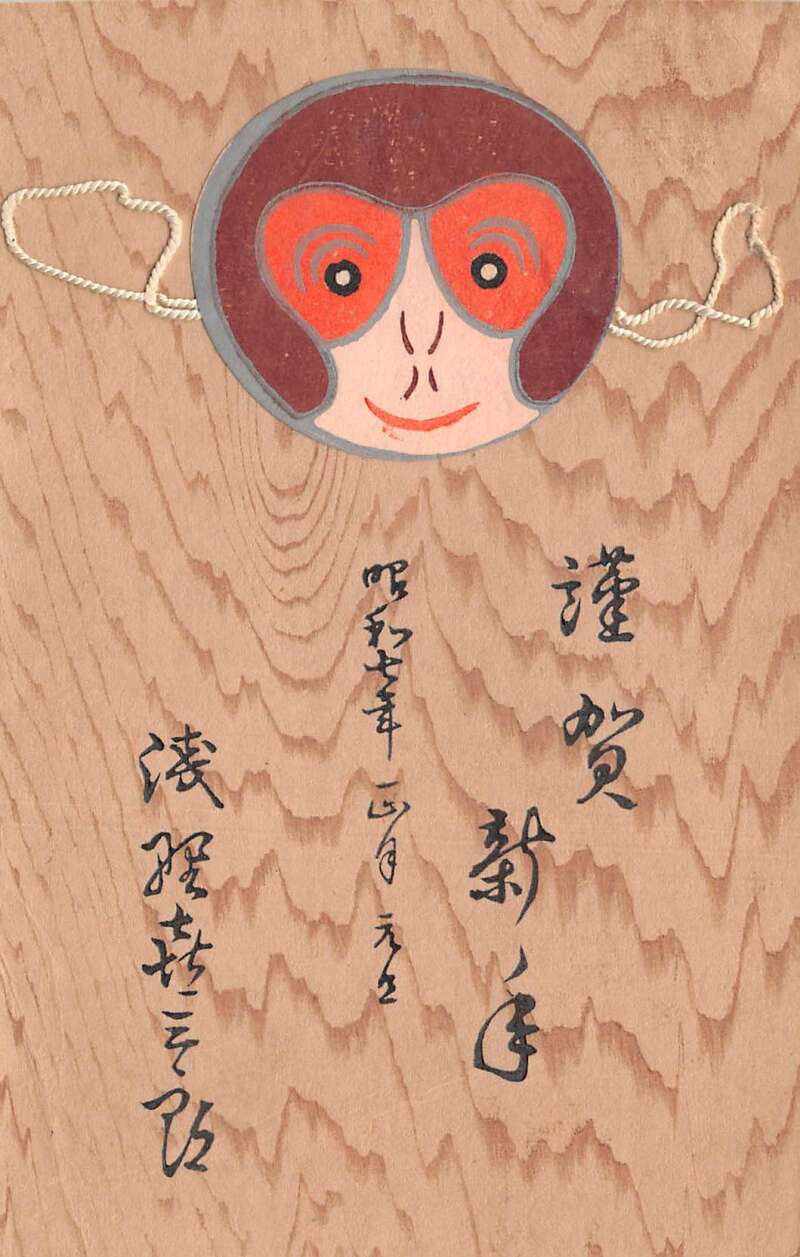 謹賀
新年
昭和七年 正月 元旦
浅野喜三郎